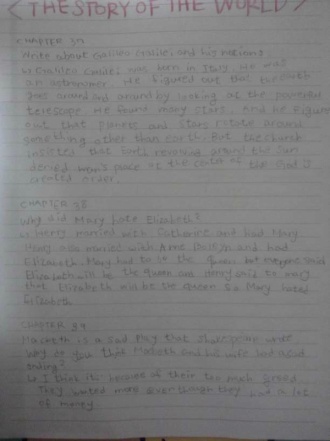 < THE STORY OF THE WORLD >
CHAPTER 37
Write about Galileo Galilei and his
↳ Galileo Galilei was born in Italy. He was
an astronomer. He figured out that the earth
around by looking at the powerful
telescope. He found many stars. And he figure
out that planets and stars rotate around
something other than earth. But the church
insisted that earth revolving around the sun
denied men's place at the center of the God's
created order.
CHAPTER 38
Why did Mary hate Elizabeth?
↳ Henry married with Catharine and had Mary
Henry also married with Anne and had
Elizabeth. Mary had to be the queen but everyone said
Elizabeth will be the queen and Henry said to Mary
that Elizabeth will be the queen so Mary hated
Elizabeth
CHAPTER 39
Macbeth is a sad play that Shakespeare
why do you think Macbeth and his wife had a sad
ending?
↳ I think it's because of their too much greed
They wanted more even though they had a lot
of money.